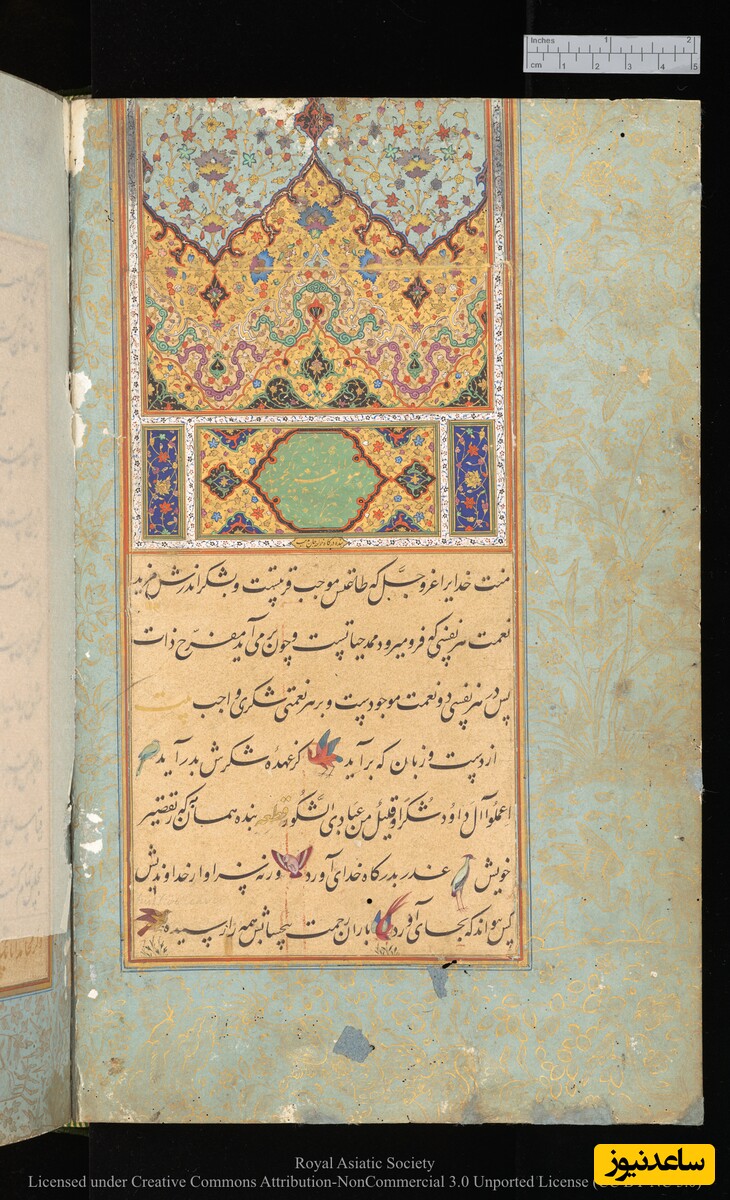 Inches 1 2
cm 1 2 3 4 5
منت خدایرا عزوجل که طاعتش موجب قربتست و بشکر اندرش مزید
نعمت هر نفسی که فرو میرود ممد حیاتست و چون بر می آید مفرح ذات
پس در هر نفسی دو نعمت موجودست و بر هر نعمتی شکری واجب بیت
از دست و زبان که برآید کز عهده شکرش بدر آید
اعملوا آل داود شکرا و قلیل من عبادی الشکور قطعه بنده همان که تقصیر
خویش عذر بدرگاه خدای آورد ورنه سزاوار خداوندیش
کس نتواند که بجای آورد باران رحمت بیحسابش همه را رسیده
Royal Asiatic Society
Licensed under Creative Commons Attribution-NonCommercial 3.0 Unported License
ساعدنیوز